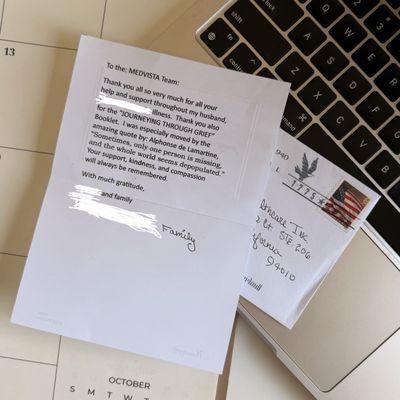 To the: MEDVISTA Team:
Thank you all so very much for all your
help and support throughout my husband,
illness. Thank you also
for the "JOURNEYING THROUGH GRIEF"
Booklet. I was especially moved by the
amazing quote by: Alphonse de Lamartine,
"Sometimes, only one person is missing,
and the whole world seems depopulated."
Your support, kindness, and compassion
will always be remembered.
With much gratitude,
and family
Family
13
OCTOBER
S M T W T
shift
fn
control
command
Z X C V
A S D F
W E R
2 3
1775
Inc
STE 206
94010